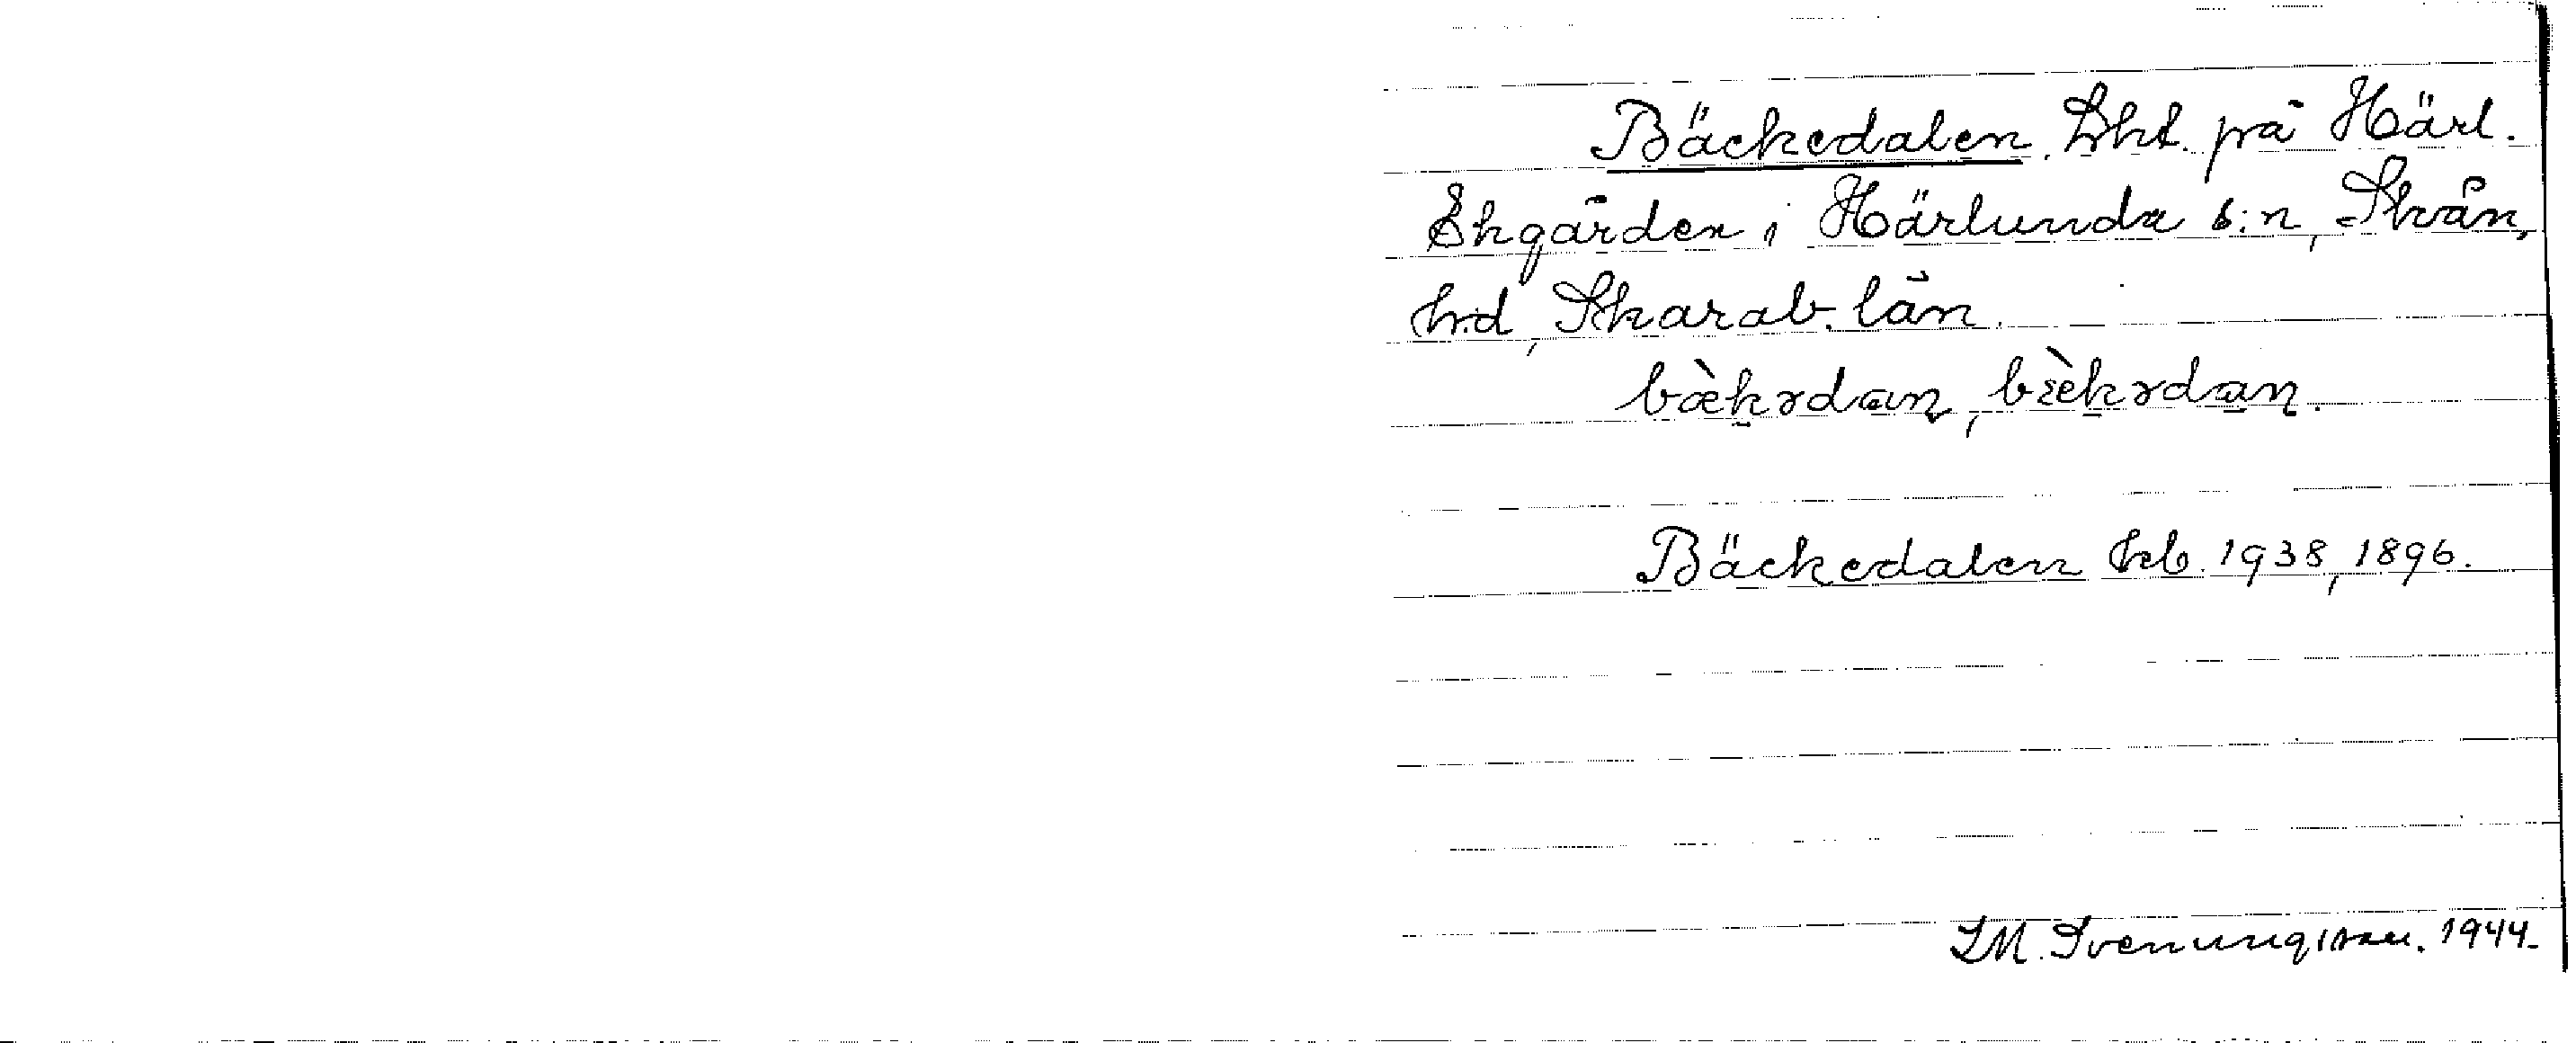 Bäckedalen. Lht. på Härl.
Ekgården i Härlunda s:n, Skån.
hd, Skarab. län.
bæ̀kədan, bæ̀kədan.
Bäckedalen hcb. 1938, 1896.
L.M. Svenungsson. 1944.